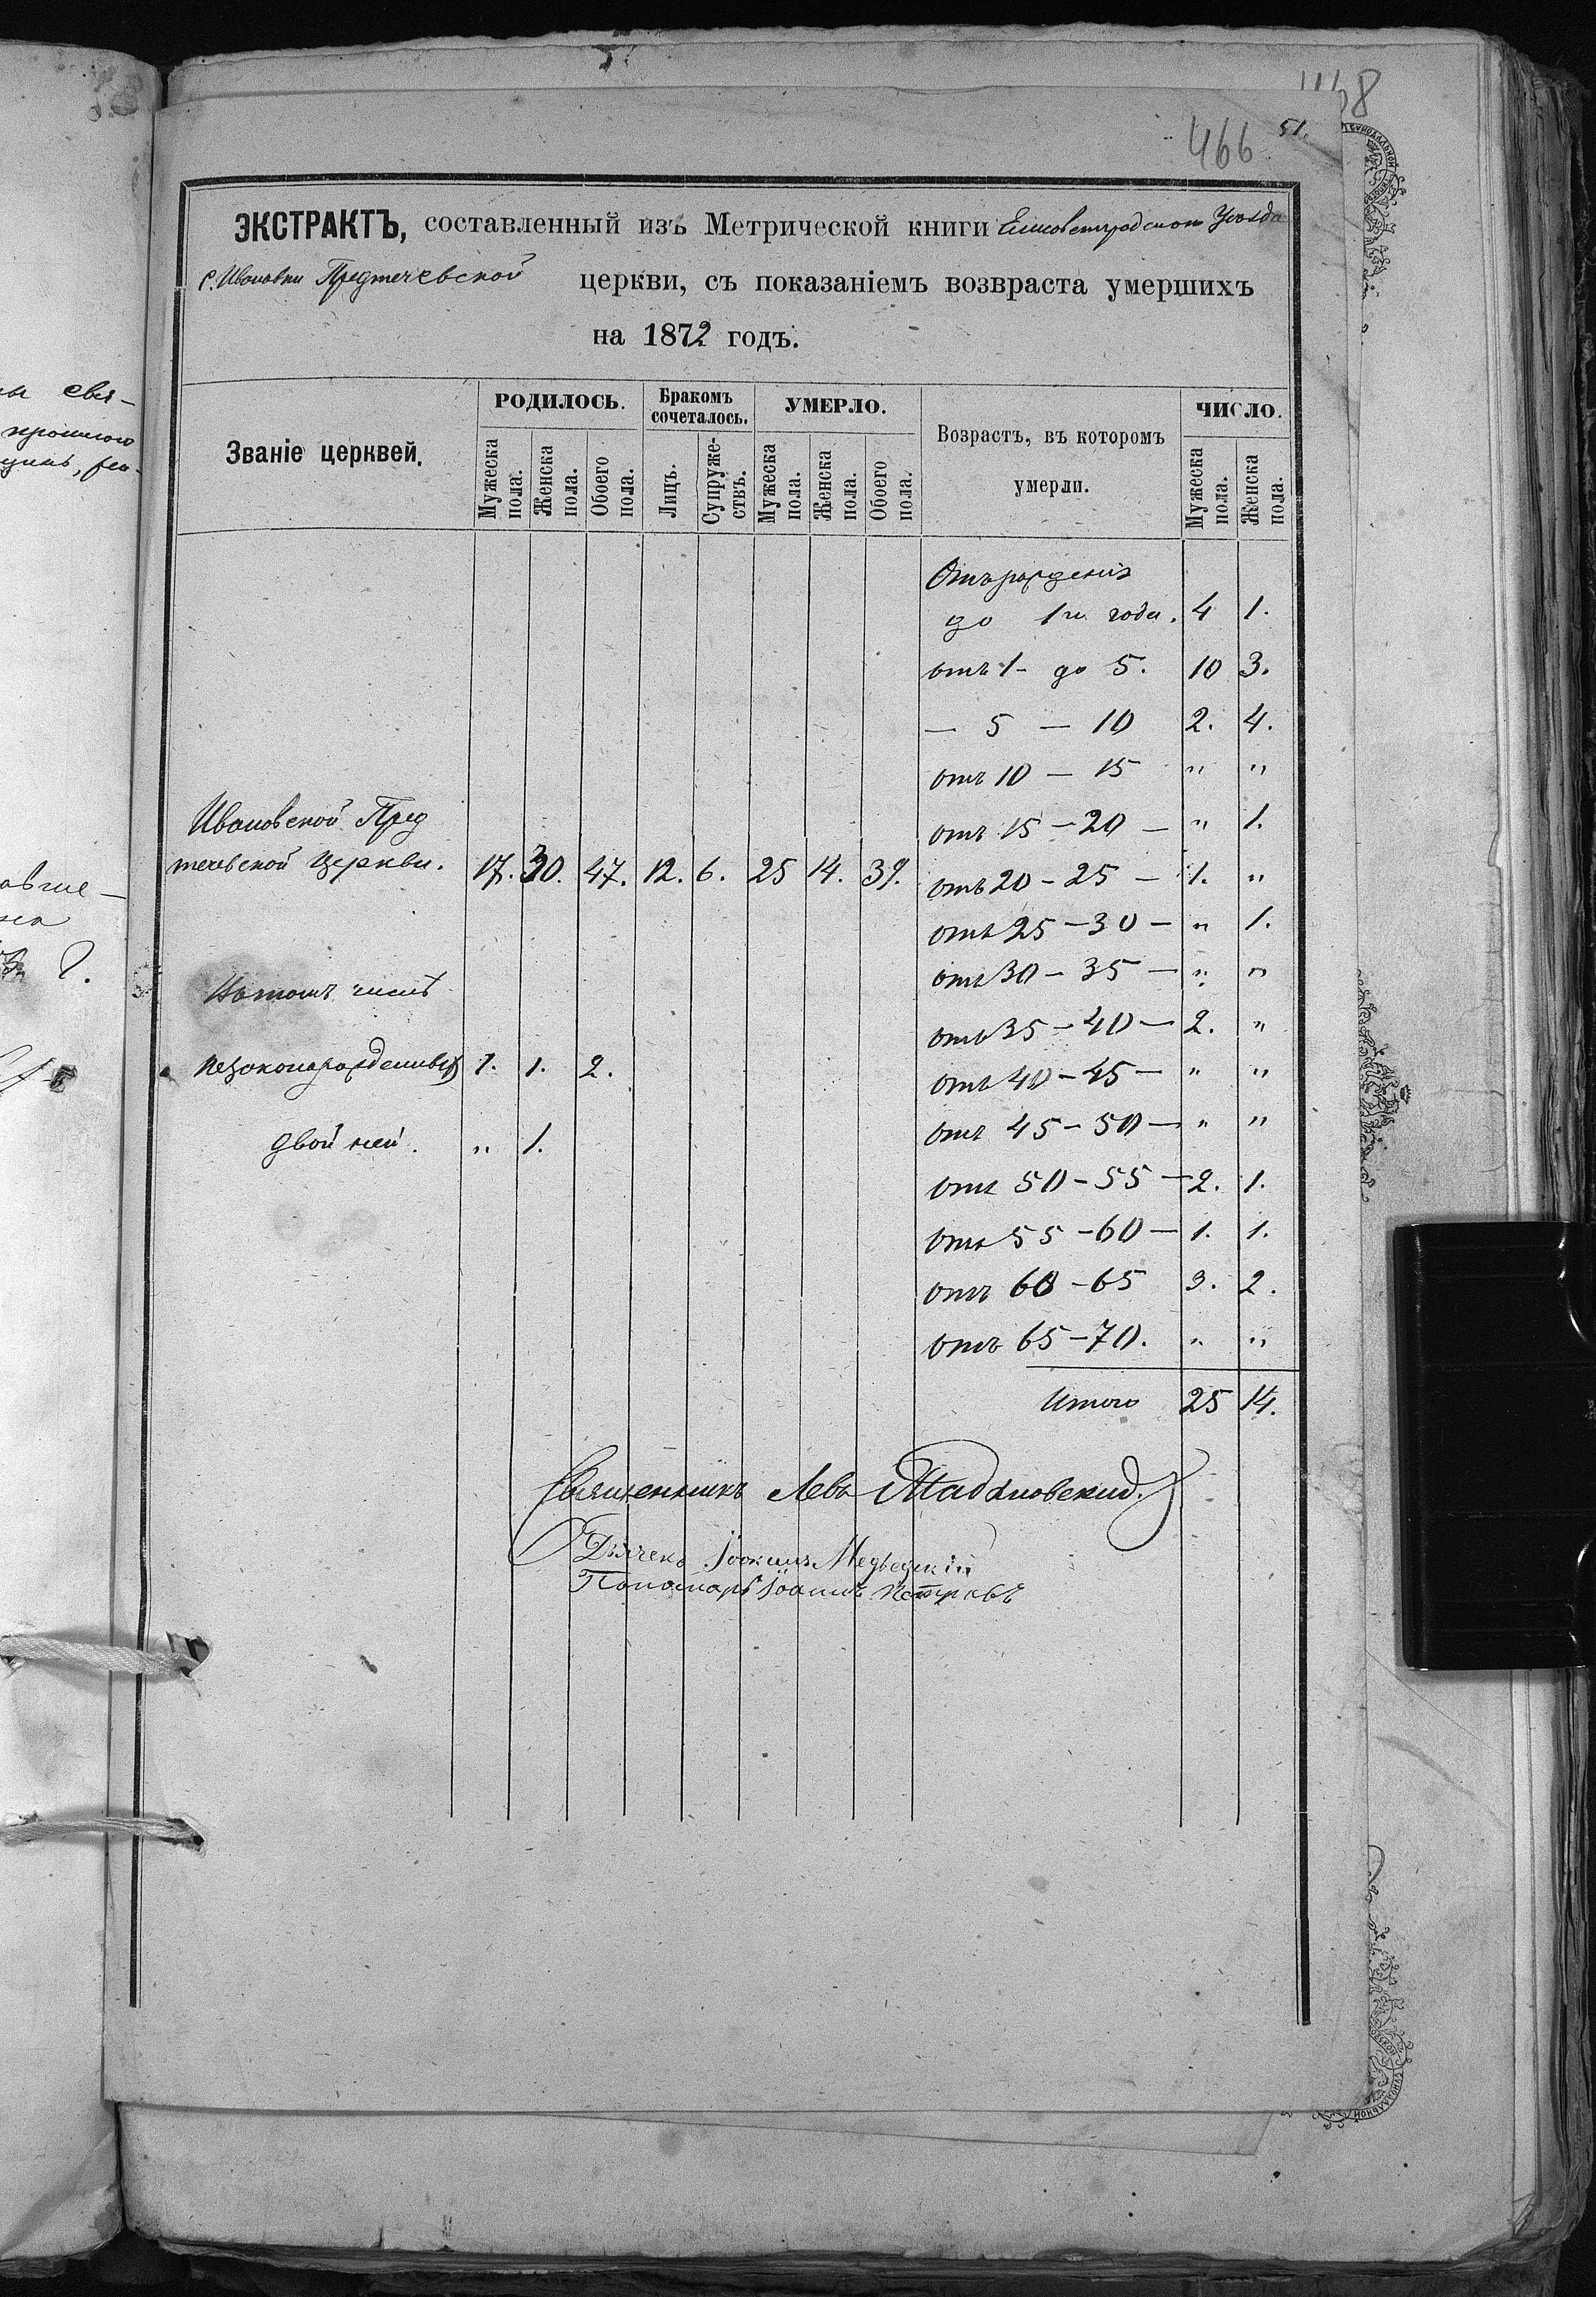 466 51.
ЭКСТРАКТЪ, составленный изъ Метрической книги Елисаветградского Уѣзда
с. Ивановки Предтечевской церкви, съ показаніемъ возвраста умершихъ
на 1872 годъ.
Званіе церквей. РОДИЛОСЬ. Бракомъ сочеталось. УМЕРЛО. Возрастъ, въ которомъ умерли. ЧИСЛО.
Мужеска пола. Женска пола. Обоего пола. Лицъ. Супружествъ. Мужеска пола. Женска пола. Обоего пола. Мужеска пола. Женска пола.
Отъ рожденія
до 1го года. 4 1.
отъ 1 - до 5. 10 3.
— 5 — 10 2. 4.
отъ 10 — 15 " "
Ивановской Пред
отъ 15 — 20 — " 1.
течевской Церкви. 17. 30. 47. 12. 6. 25 14. 39.
отъ 20 - 25 — 1. "
отъ 25 - 30 — " 1.
отъ 30 - 35 — " "
Въ томъ числѣ
отъ 35 - 40 — 2. "
незаконорожденныхъ 1. 1. 2.
отъ 40 - 45 — " "
отъ 45 - 50 — " "
двойней. " 1.
отъ 50 - 55 — 2. 1.
отъ 55 - 60 — 1. 1.
отъ 60 - 65 3. 2.
отъ 65 - 70. " "
Итого 25 14.
Священникъ Левъ
Дьячекъ Іоакимъ Медвѣдскій
Пономарь Іоаннъ